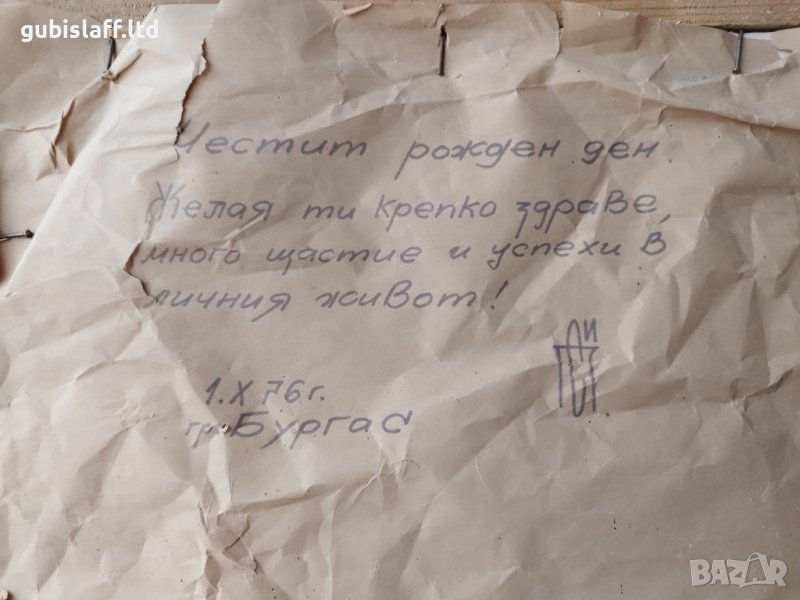 gubislaff.ltd
Честит рожден ден.
Желая ти крепко здраве,
много щастие и успехи в
личния живот!
1.X 76 г.
гр. Бургас
BAZAR